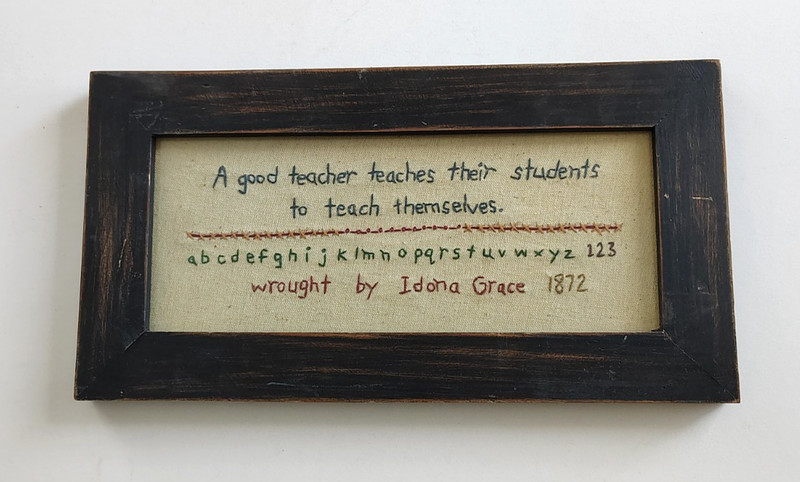 A good teacher teaches their students
to teach themselves.
abcdefghijklmnopqrstuvwxyz 123
wrought by Idona Grace 1872